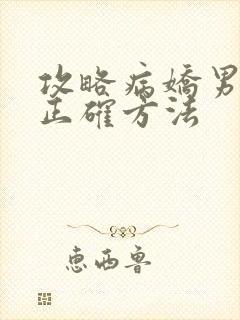 攻略病嬌男
正確方法
恵西魯